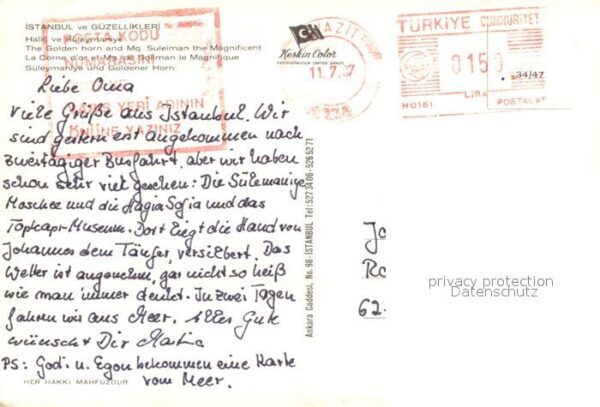 İSTANBUL ve GÜZELLİKLERİ
Haliç ve Süleymaniye
The Golden horn and Mq. Suleiman the Magnificent
La Corne d'or et la Mq. de Soliman le Magnifique
Süleymaniye und Goldener Horn
POSTA KODU
NUMARASINI
YERİ ADININ
ÖNÜNE YAZINIZ
Keskin Color
11.7.87
TÜRKİYE CUMHURİYET
0150
34/47
LİRA
H0161
POSTALAR
Liebe Oma
Viele Grüße aus Istanbul. Wir
sind gestern erst angekommen nach
zweitägiger Busfahrt, aber wir haben
schon sehr viel gesehen: Die Sülemaniye
Moschee und die Hagia Sofia und das
Topkapı-Museum. Dort liegt die Hand von
Johannes dem Täufer, versilbert. Das
Wetter ist angenehm, gar nicht so heiß
wie man immer denkt. In zwei Tagen
fahren wir ans Meer. Alles Gute
wünscht Dir
PS: Godi u. Egon bekommen eine Karte
vom Meer.
HER HAKKI MAHFUZDUR
Ankara Caddesi, No. 98 - İSTANBUL Tel: 5273406-5265271
Ja
Ro
62
privacy protection
Datenschutz